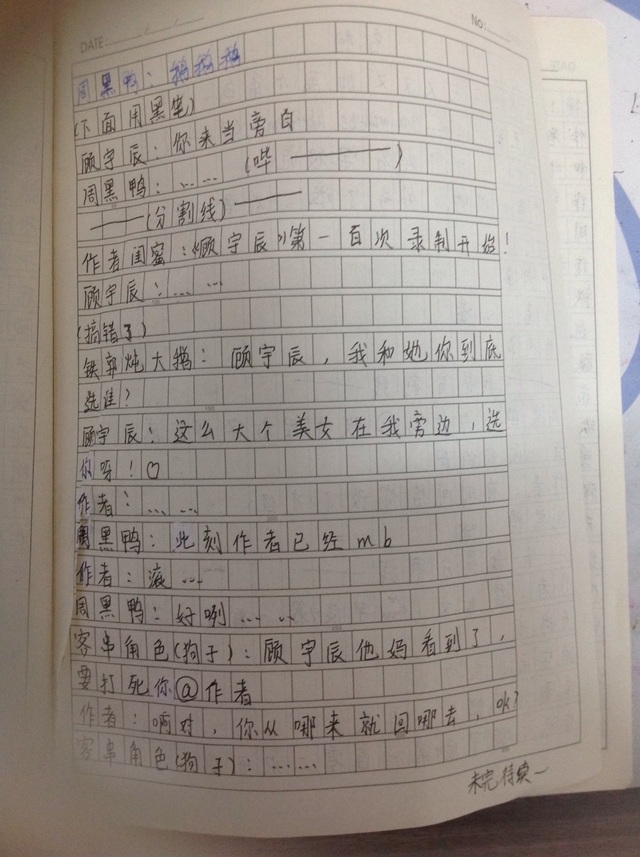 DATE / /
No:
周黑鸭：鹅鹅鹅
(下面用黑笔)
顾宇辰：你来当旁白
周黑鸭：…… (哔 ——— )
——(分割线)——
作者闺蜜：《顾宇辰》第一百次录制开始！
顾宇辰：……
(搞错了)
铁郭炖大鹅：顾宇辰，我和她你到底
选谁？
顾宇辰：这么大个美女在我旁边，选
你呀！♡
作者：……
周黑鸭：此刻作者已经mb
作者：滚…
周黑鸭：好咧……
客串角色(狗子)：顾宇辰他妈看到了，
要打死你@作者
作者：啊对，你从哪来就回哪去，ok？
客串角色(狗子)：……
未完待续～